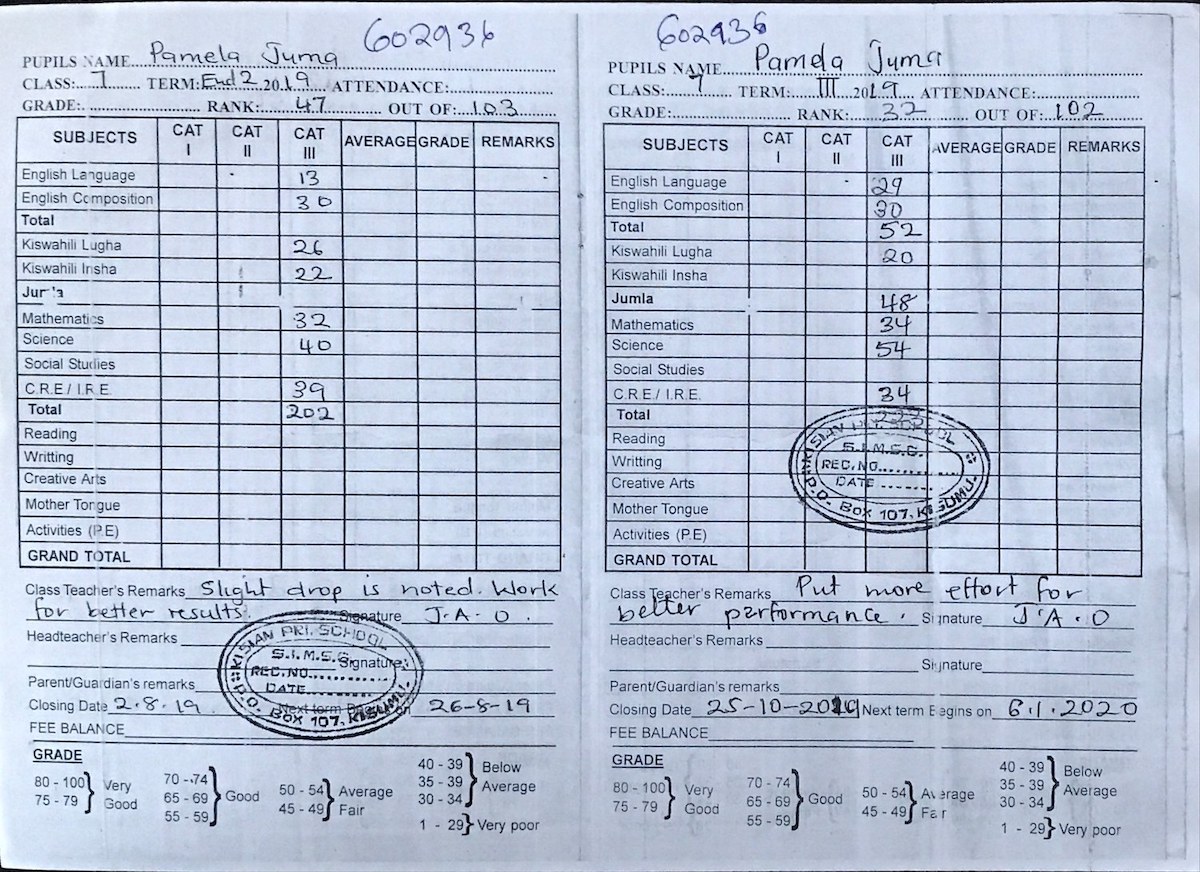 602936
PUPILS NAME Pamela Juma
CLASS: 7 TERM: End 2 2019 ATTENDANCE:
GRADE: RANK: 47 OUT OF: 103
SUBJECTS CAT I CAT II CAT III AVERAGE GRADE REMARKS
English Language 13
English Composition 30
Total
Kiswahili Lugha 26
Kiswahili Insha 22
Mathematics 32
Science 40
Social Studies
C.R.E / I.R.E 39
Total 202
Reading
Writting
Creative Arts
Mother Tongue
Activities (P.E)
GRAND TOTAL
Class Teacher's Remarks Slight drop is noted. Work
for better results. Signature J.A.O.
Headteacher's Remarks
Signature
Parent/Guardian's remarks
Closing Date 2.8.19 Next term 26-8-19
FEE BALANCE
KISIAN PRI. SCHOOL
S.I.M.S.C.
REC. NO.
DATE
P.O. Box 107, KISUMU.
GRADE
80 - 100 Very
75 - 79 Good
70 - 74
65 - 69 Good
55 - 59
50 - 54 Average
45 - 49 Fair
40 - 39 Below
35 - 39 Average
30 - 34
1 - 29 Very poor
602936
PUPILS NAME Pamela Juma
CLASS: 7 TERM: III 2019 ATTENDANCE:
GRADE: RANK: OUT OF: 102
SUBJECTS CAT I CAT II CAT III AVERAGE GRADE REMARKS
English Language 29
English Composition 30
Total 52
Kiswahili Lugha 20
Kiswahili Insha
Jumla 48
Mathematics 34
Science 54
Social Studies
C.R.E / I.R.E. 34
Total
Reading
Writting
Creative Arts
Mother Tongue
Activities (P.E)
GRAND TOTAL
KISIAN PRI. SCHOOL
S.I.M.S.C.
REC. NO.
DATE
P.O. Box 107, KISUMU.
Class Teacher's Remarks Put more effort for
better performance. Signature J.A.O
Headteacher's Remarks
Signature
Parent/Guardian's remarks
Closing Date 25-10-2019 Next term Begins on 6.1.2020
FEE BALANCE
GRADE
80 - 100 Very
75 - 79 Good
70 - 74
65 - 69 Good
55 - 59
50 - 54 Average
45 - 49 Fair
40 - 39 Below
35 - 39 Average
30 - 34
1 - 29 Very poor